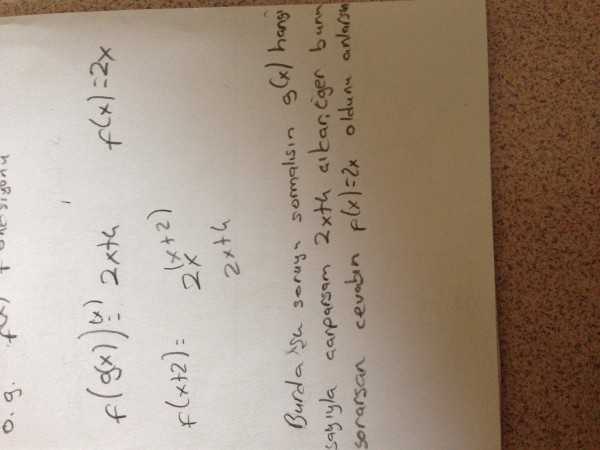 o.g. f(x) fonksiyonu
f(g(x))(x) = 2x+4 f(x)=2x
f(x+2)= 2x(x+2)
2x+4
Burda şu soruyu sormalısın g(x) hangi
sayıyla çarparsam 2x+4 çıkar, Eğer bunu
sorarsan cevabın f(x)=2x oldunu anlarsın